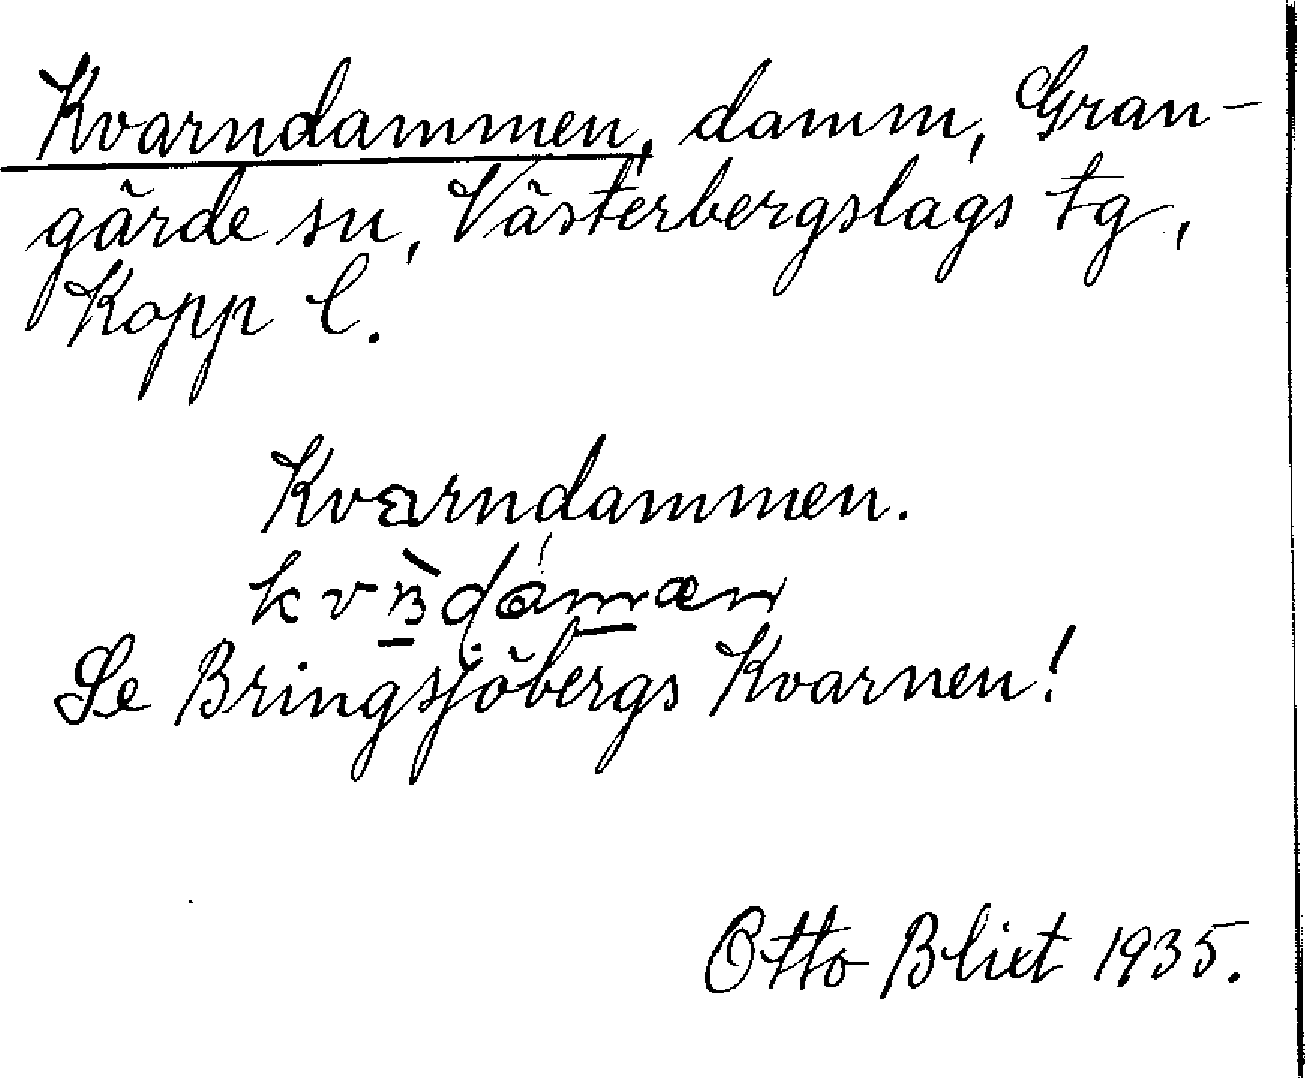 Kvarndammen, damm, Gran-
gärde sn, Västerbergslags tg,
Kopp l.
Kvarndammen.
Se Bringsjöbergs Kvarnen!
Otto Blixt 1935.